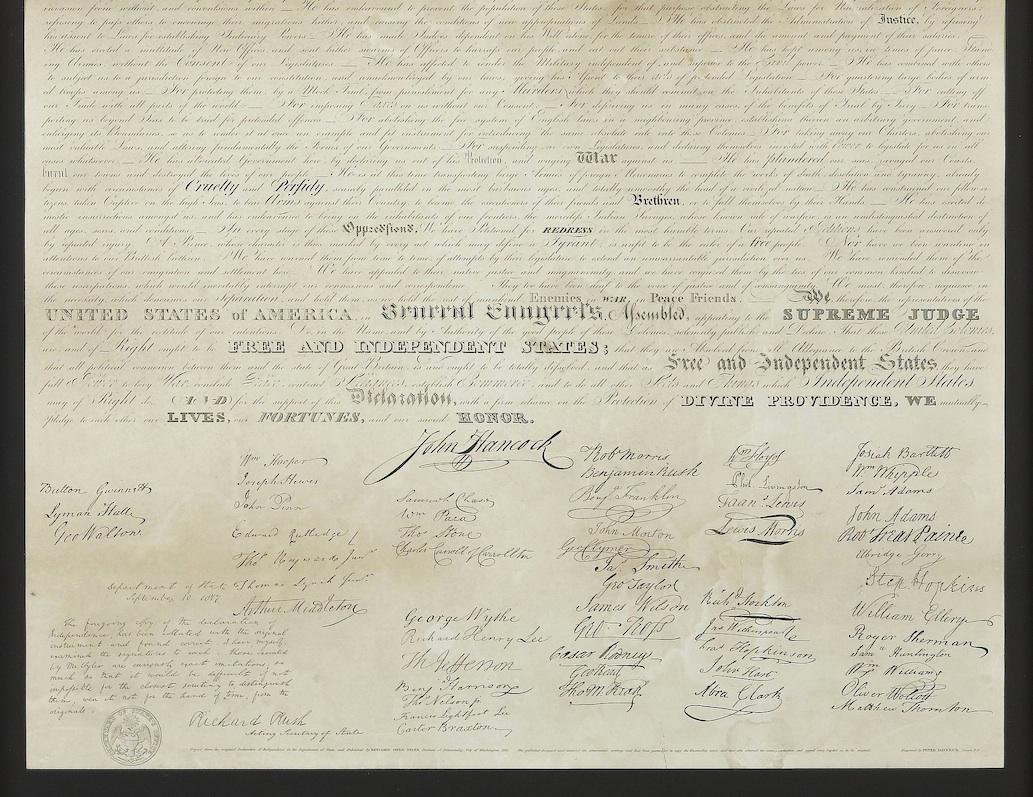 invasion from without, and convulsions within. — He has endeavoured to prevent the population of these States; for that purpose obstructing the Laws for Naturalization of Foreigners;
refusing to pass others to encourage their migrations hither, and raising the conditions of new appropriations of Lands. — He has obstructed the Administration of Justice, by refusing
his assent to Laws for establishing Judiciary Powers. — He has made Judges dependent on his Will alone, for the tenure of their offices, and the amount and payment of their salaries. —
He has erected a multitude of New Offices, and sent hither swarms of Officers to harrass our people, and eat out their substance. — He has kept among us, in times of peace, Stand
ing Armies, without the Consent of our Legislatures. — He has affected to render the Military independent of, and superior to the Civil power. — He has combined with others
to subject us to a jurisdiction foreign to our constitution, and unacknowledged by our laws; giving his Assent to their acts of pretended Legislation: — For quartering large bodies of arm
ed troops among us: — For protecting them, by a Mock Trial, from punishment for any Murders which they should commit on the Inhabitants of these States: — For cutting off
our Trade with all parts of the world: — For imposing Taxes on us without our Consent: — For depriving us in many cases, of the benefits of Trial by Jury: — For trans
porting us beyond Seas to be tried for pretended offences: — For abolishing the free System of English Laws in a neighbouring Province, establishing therein an arbitrary government, and
enlarging its Boundaries, so as to render it at once an example and fit instrument for introducing the same absolute rule into these Colonies: — For taking away our Charters, abolishing our
most valuable Laws, and altering fundamentally the Forms of our Governments: — For suspending our own Legislatures, and declaring themselves invested with Power to legislate for us in all
cases whatsoever. — He has abdicated Government here, by declaring us out of his Protection, and waging War against us: — He has plundered our seas, ravaged our Coasts,
burnt our towns, and destroyed the lives of our people. — He is at this time transporting large Armies of foreign Mercenaries to complete the works of death, desolation and tyranny, already
begun with circumstances of Cruelty and Perfidy, scarcely paralleled in the most barbarous ages, and totally unworthy the head of a civilized nation. — He has constrained our fellow ci
tizens taken Captive on the high Seas, to bear Arms against their Country, to become the executioners of their friends and Brethren, or to fall themselves by their Hands. — He has excited do
mestic insurrections amongst us, and has endeavoured to bring on the inhabitants of our frontiers, the merciless Indian Savages, whose known rule of warfare, is an undistinguished destruction of
all ages, sexes, and conditions. — In every stage of these Oppressions, We have Petitioned for REDRESS in the most humble terms: Our repeated Petitions, have been answered only
by repeated injury. A Prince whose character is thus marked by every act which may define a Tyrant, is unfit to be the ruler of a free People. Nor have we been wanting in
attentions to our British brethren. We have warned them from time to time, of attempts by their legislature to extend an unwarrantable jurisdiction over us. We have reminded them of the
circumstances of our emigration and settlement here. We have appealed to their native justice and magnanimity, and we have conjured them by the ties of our common kindred to disavow
these usurpations, which would inevitably interrupt our connections and correspondence. They too have been deaf to the voice of justice and of consanguinity. We must, therefore, acquiesce in
the necessity, which denounces our Separation, and hold them, as we hold the rest of mankind, Enemies in WAR, in Peace Friends. — We therefore, the Representatives of the
UNITED STATES of AMERICA, in General Congress, Assembled, appealing to the SUPREME JUDGE
of the world for the rectitude of our intentions, Do, in the Name, and by Authority of the good People of these Colonies, solemnly publish and Declare, That these United Colonies,
are, and of Right ought to be FREE AND INDEPENDENT STATES; that they are Absolved from all Allegiance to the British Crown, and
that all political connection between them and the State of Great Britain, is and ought to be totally dissolved; and that as Free and Independent States, they have
full Power to levy War, conclude Peace, contract Alliances, establish Commerce, and to do all other Acts and Things which Independent States
may of Right do. AND for the support of this Declaration, with a firm reliance on the Protection of DIVINE PROVIDENCE, WE mutually
pledge to each other our LIVES, our FORTUNES, and our sacred HONOR.
John Hancock
Button Gwinnett
Lyman Hall
Geo Walton.
Wm Hooper
Joseph Hewes
John Penn
Edward Rutledge
Thos Heyward Junr
Thomas Lynch Junr
Arthur Middleton
Samuel Chase
Wm Paca
Thos Stone
Charles Carroll of Carrollton
George Wythe
Richard Henry Lee
Th Jefferson
Benj Harrison
Thos Nelson jr
Francis Lightfoot Lee
Carter Braxton
Robt Morris
Benjamin Rush
Benj Franklin
John Morton
Geo Clymer
Jas. Smith
Geo Taylor
James Wilson
Geo. Ross
Caesar Rodney
Geo Read
Tho M:Kean
Wm Floyd
Phil. Livingston
Frans Lewis
Lewis Morris
Richd Stockton
Jno Witherspoon
Fras Hopkinson
John Hart
Abra Clark
Josiah Bartlett
Wm Whipple
Saml Adams
John Adams
Robt Treat Paine
Elbridge Gerry
Step Hopkins
William Ellery
Roger Sherman
Saml Huntington
Wm Williams
Oliver Wolcott
Matthew Thornton
Department of State
September 10 1817
The foregoing copy of the declaration of
Independence has been collated with the original
instrument and found correct. I have myself
examined the signatures to each. Those executed
by Mr Tyler are curiously exact imitations, so
much so that it would be difficult if not
impossible for the closest scrutiny to distinguish
them, were it not for the hand of time, from the
originals.
Richard Rush
Acting Secretary of State